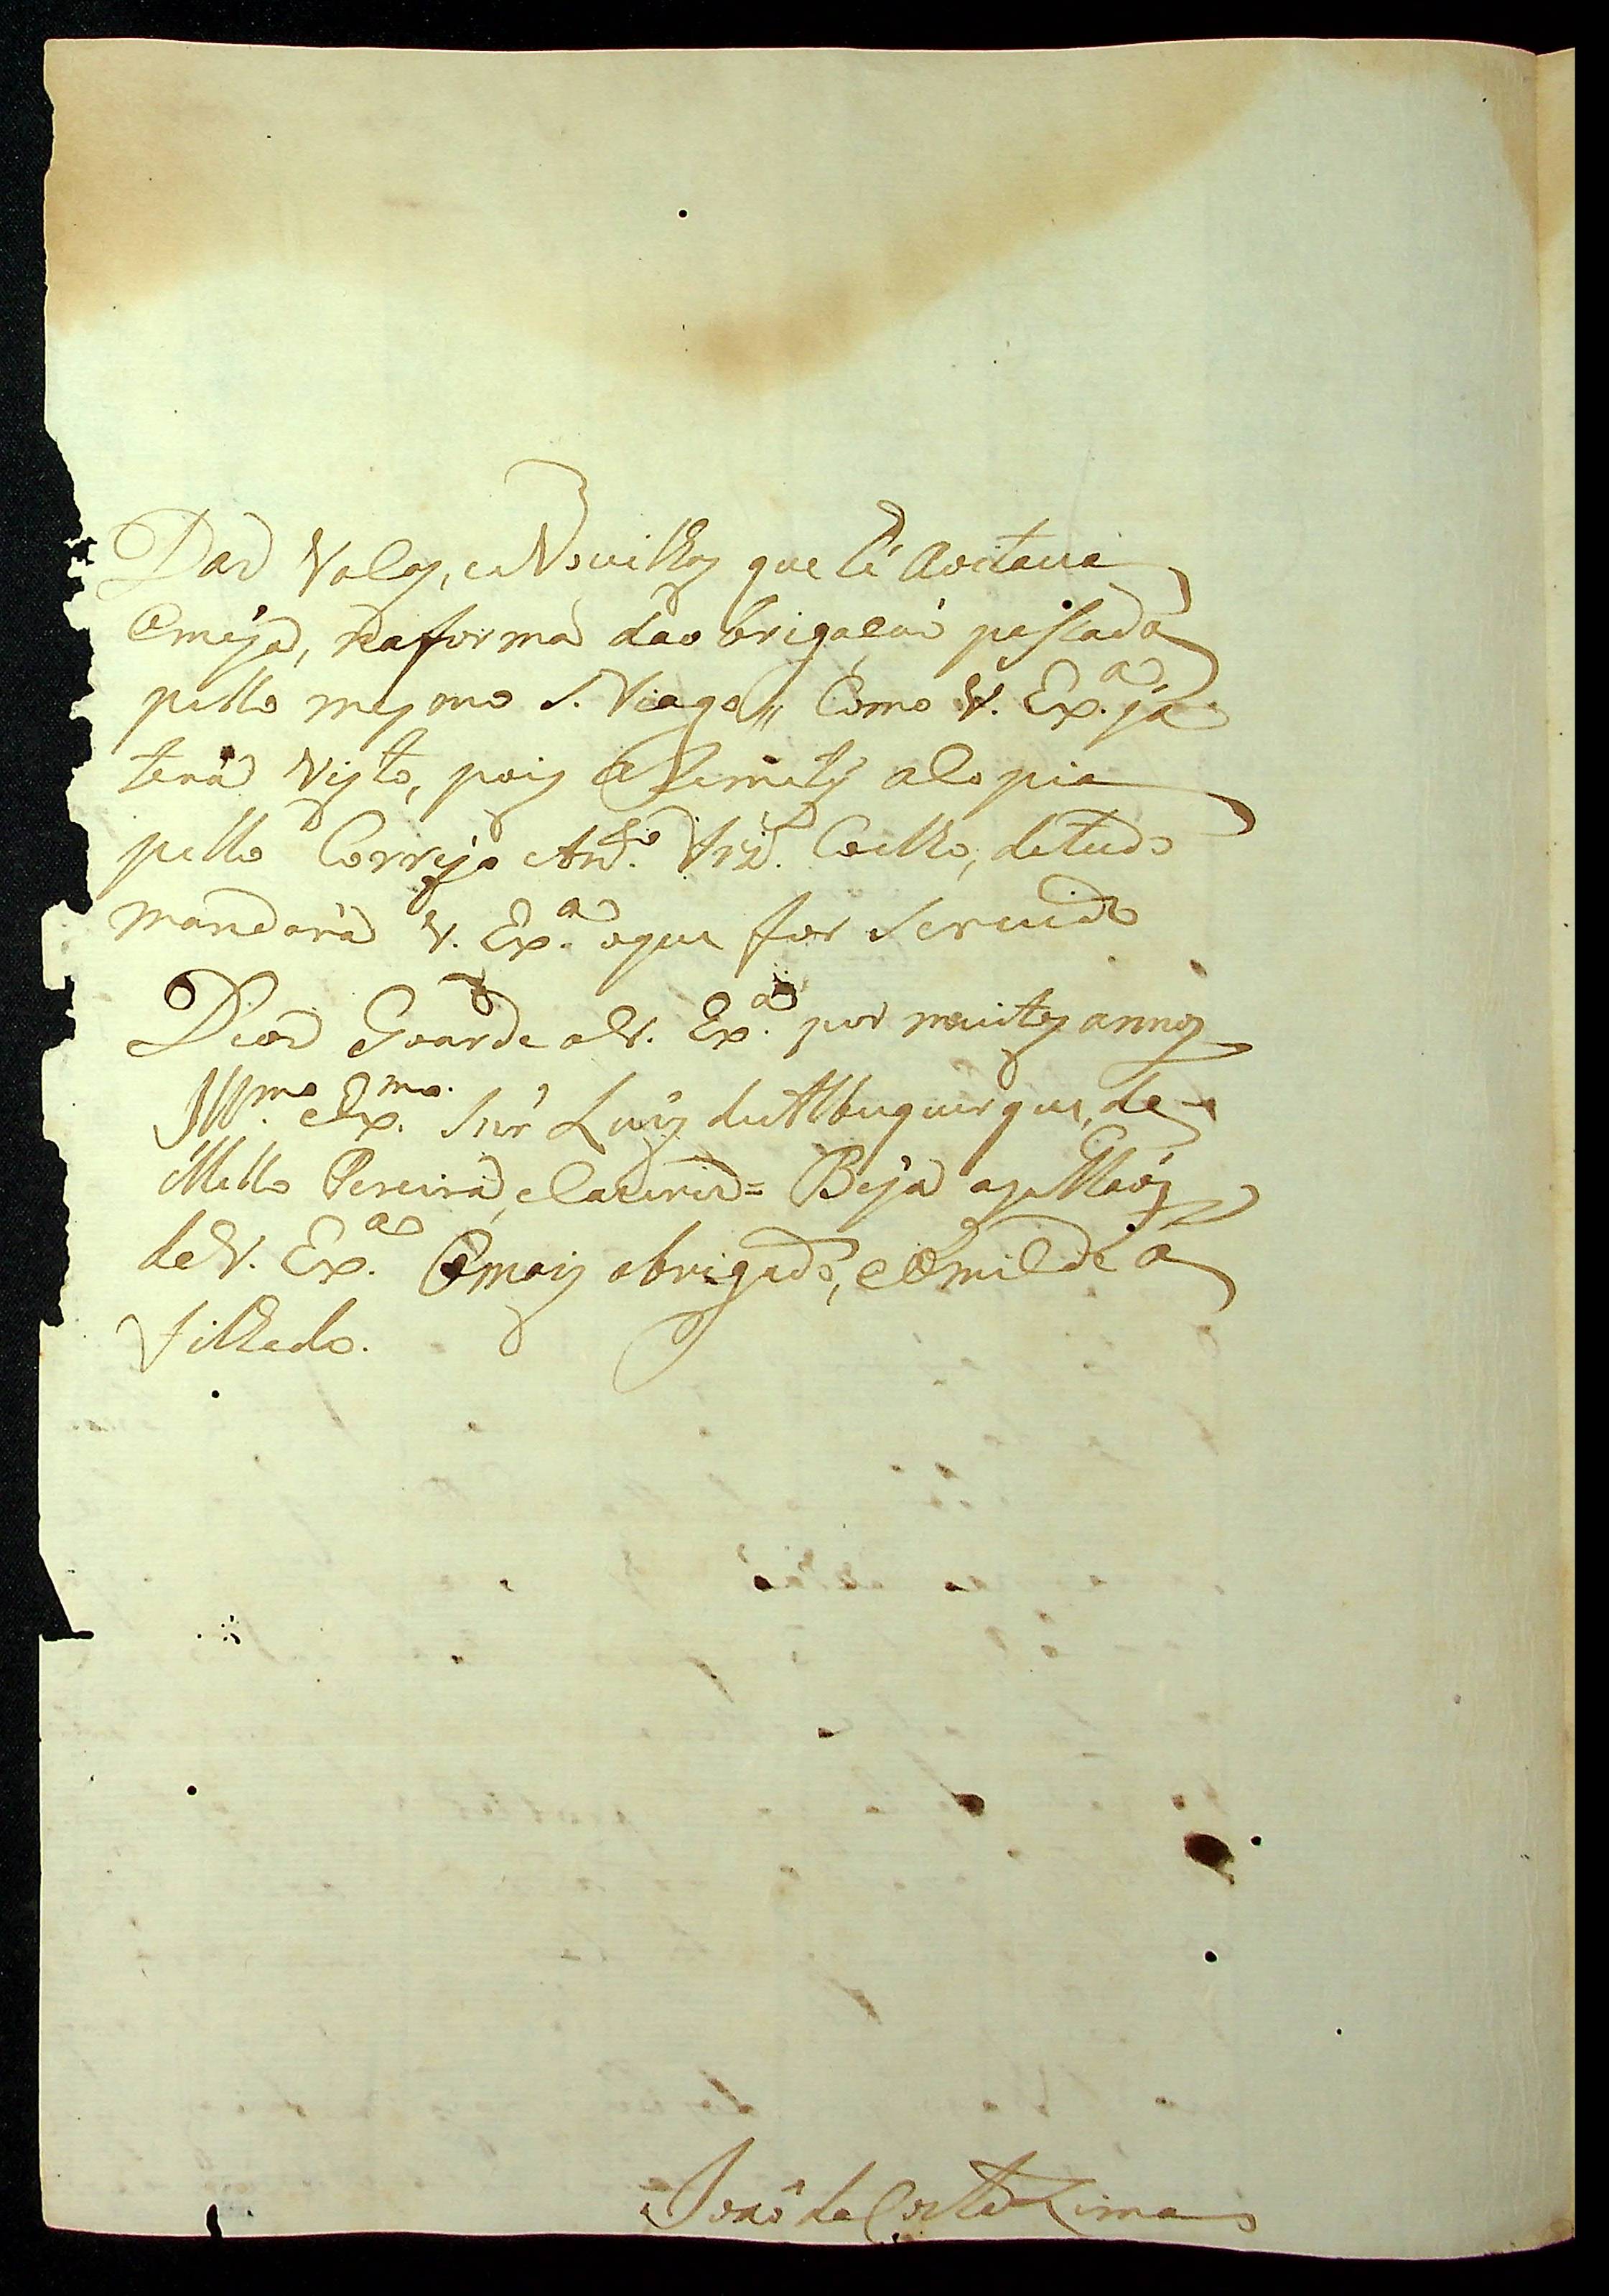 Das Valas, e Novilhas que lá Avitava
Emeja, naforma dao brigacaõ passada
pello mesmo S. Viago,, Como V. Ex.ª já
terá Visto, pois a Remety acopia
pello Correyo Ant.º Frz̃. Coelho, detudo
mandará V. Ex.ª oque for Servido
Deos Goarde aV. Ex.ª por muitos annos
Ill.mo eEx.mo Snr̃ Luis deAlbuquerque, de
Mello Pereira, eCaceres = Beija as Maõs
deV. Ex.ª Omais obrigado, eOmilde a
filhado.
Joaõ da Costa Lima